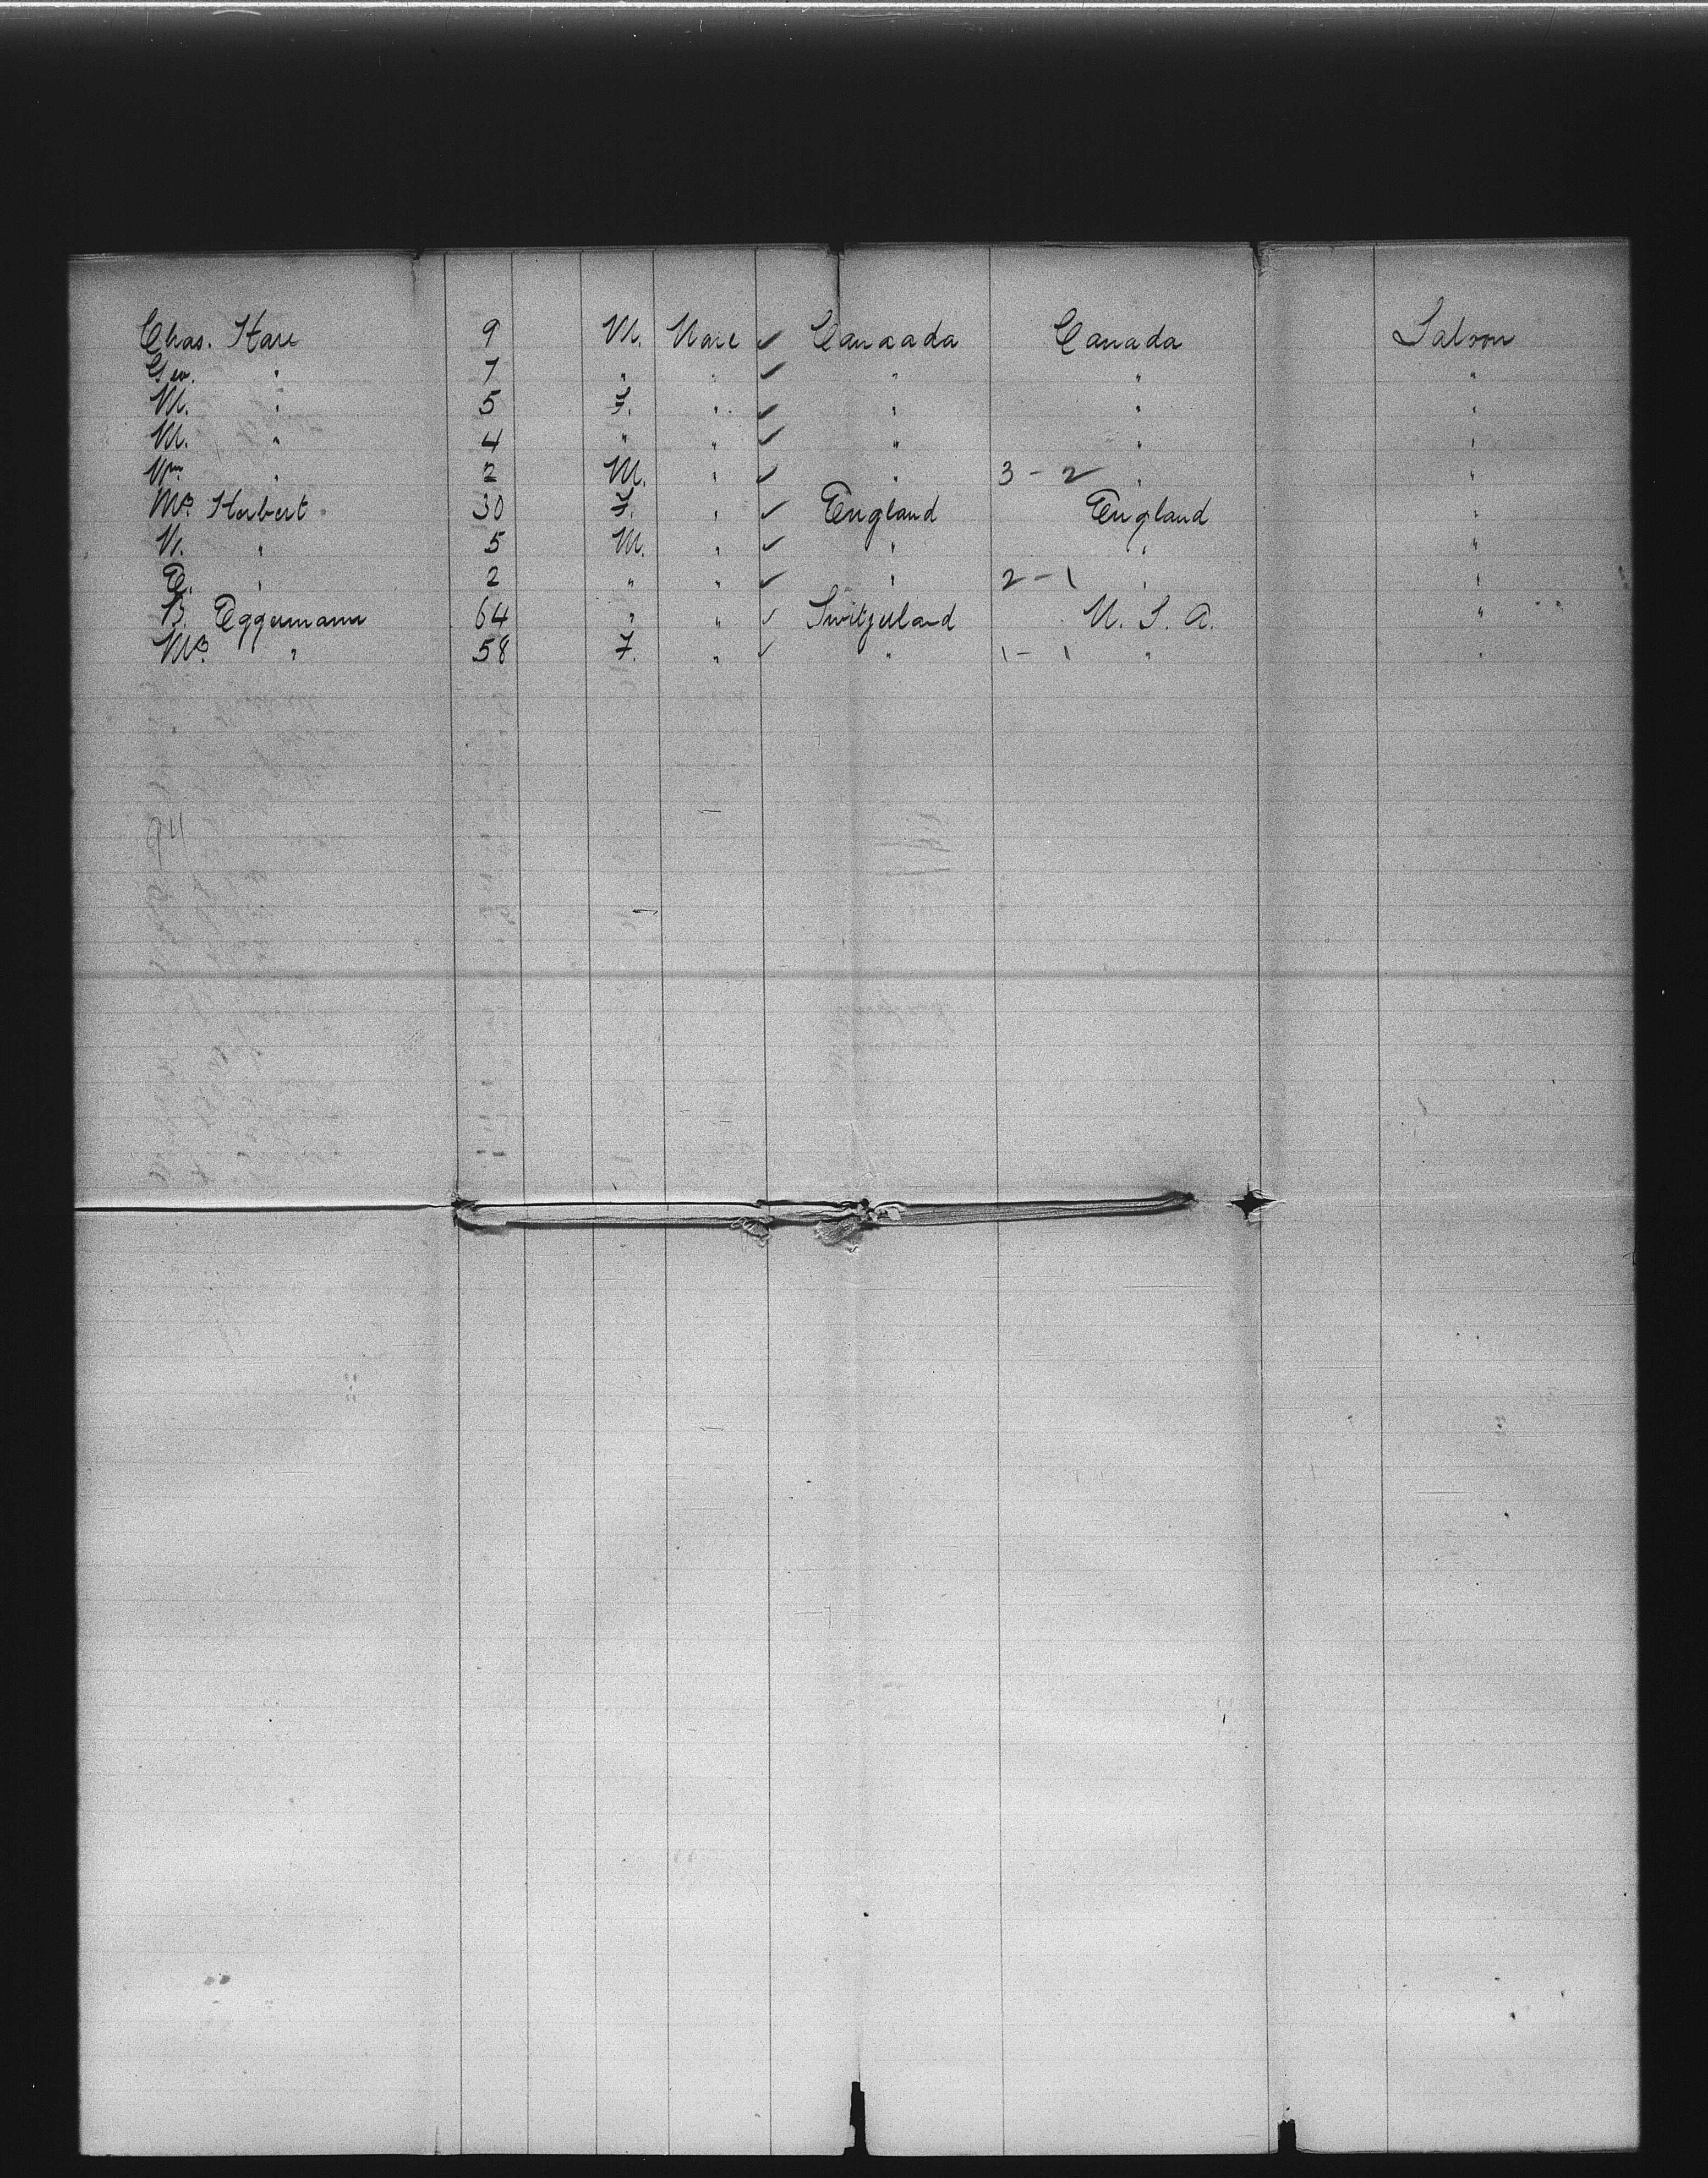 Chas. Hare 9 M. None ✓ Canaada Canada Saloon
Geo. " 7 " " ✓ " " "
M. " 5 F. " ✓ " " "
M. " 4 " " ✓ " " "
Wm " 2 M. " ✓ " 3 - 2 " "
Mrs Herbert 30 F. " ✓ England England "
N. " 5 M. " ✓ " " "
E. " 2 " " ✓ " 2 - 1 " "
B. Eggemann 64 " " ✓ Switzerland U. S. A. "
Mrs " 58 F. " ✓ " 1 - 1 " "